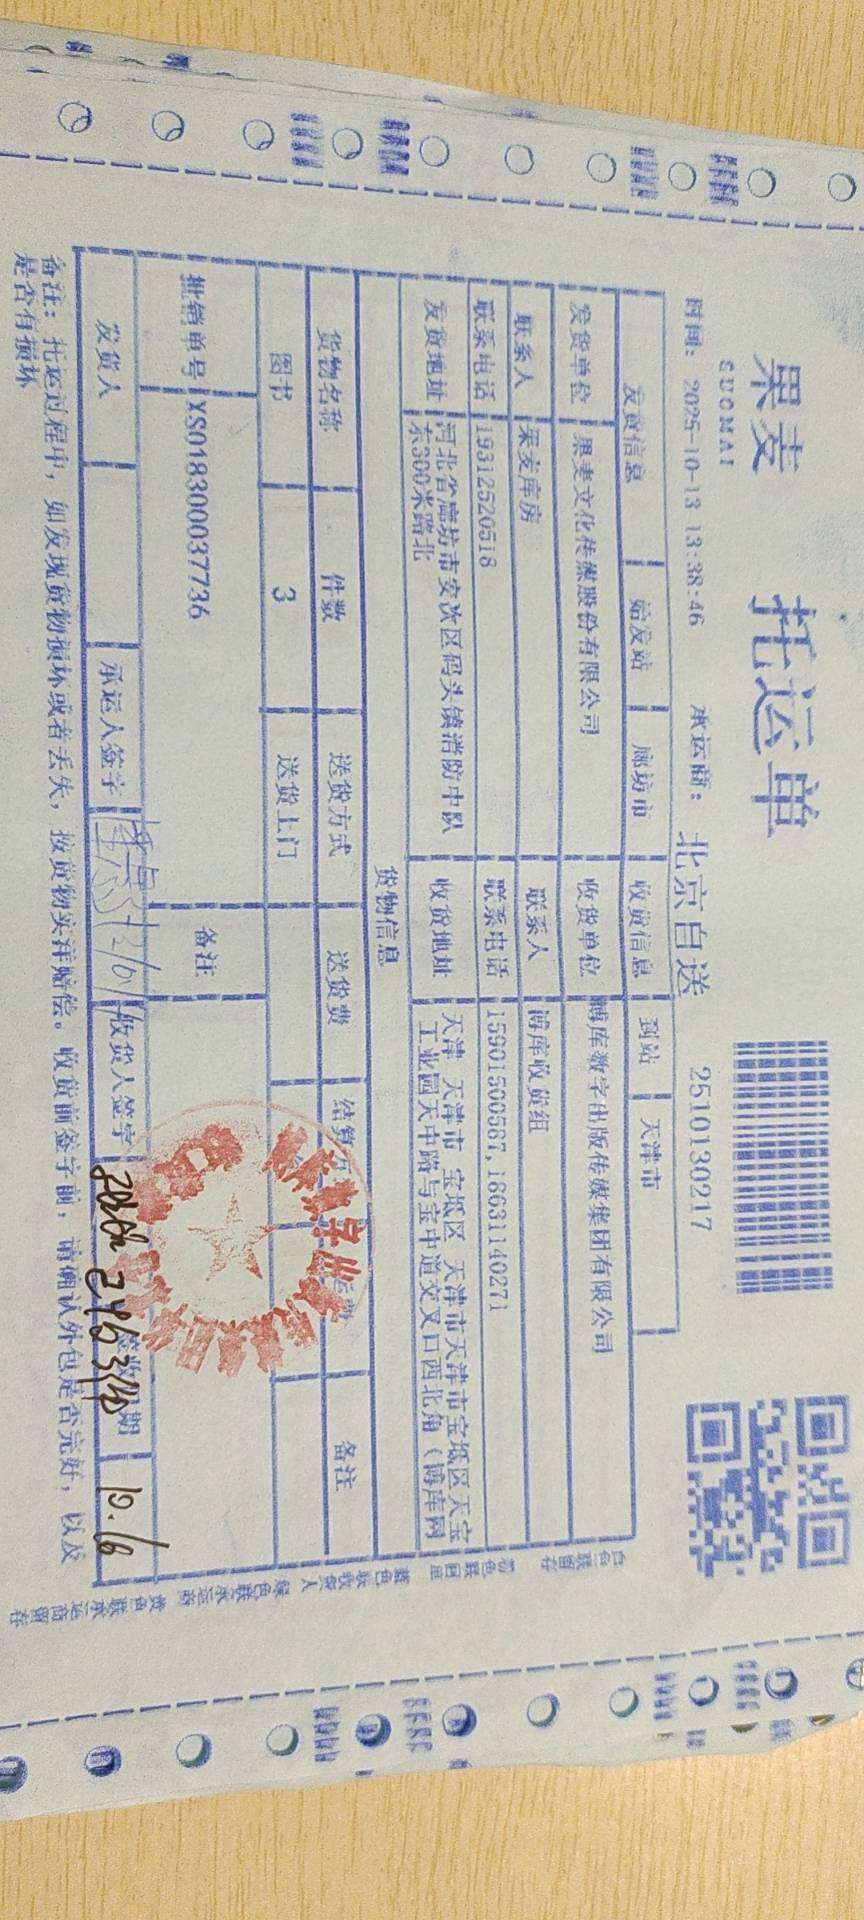 果麦
GUOMAI
托运单
时间：2025-10-13 13:38:46 承运商：北京自送 2510130217
发货信息 始发站 廊坊市 收货信息 到站 天津市
发货单位 果麦文化传媒股份有限公司 收货单位 博库数字出版传媒集团有限公司
联系人 果麦库房 联系人 博库收货组
联系电话 19312520518 联系电话 15901500587,18631140271
发货地址 河北省廊坊市安次区码头镇消防中队东300米路北 收货地址 天津 天津市 宝坻区 天津市天津市宝坻区天宝工业园天中路与宝中道交叉口西北角（博库网
货物信息
货物名称 件数 送货方式 送货费 结算方 运费 备注
图书 3 送货上门
批销单号 XS018300037736 备注
发货人 承运人签字 收货人签字 签收日期 10.16
备注：托运过程中，如发现货物损坏或者丢失，按货物实洋赔偿。收货前签字前，请确认外包是否完好，以及
是否有损坏
白色联留存 粉色联回单 蓝色联收货人 绿色联承运商 黄色联承运商留存